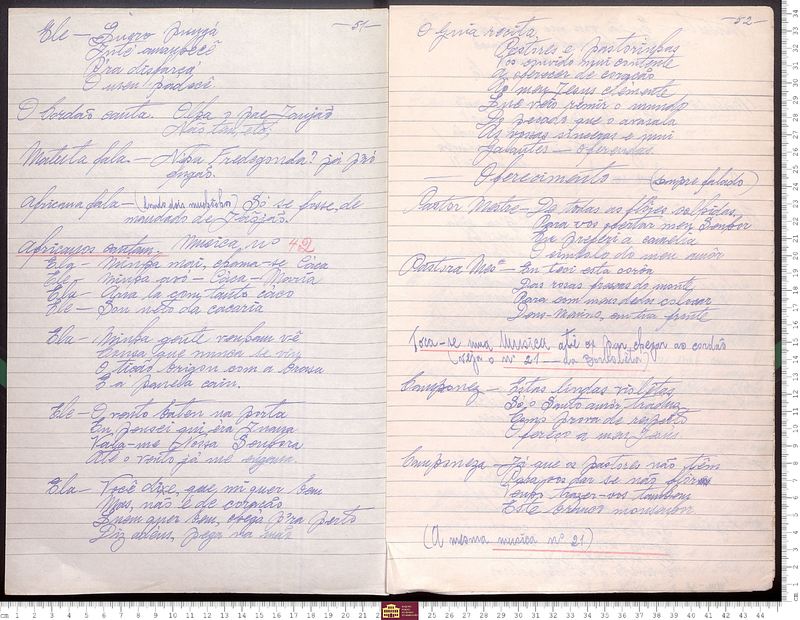 —51—
Ele — Suzro Junjá
Inté amanhecê
P'ra disfarçá
O meu padecê.
O cordão canta. Olha o pae Janjão
Matuta fala. — Nhra Fredegonda? já
Africana fala — Só se fosse de
mandado de Janjão.
Africanos cantam. Musica nº 42
Ela — Minha mai, chama-se Caca
Ele — Minha avó — Caca — Maria
Ela —
Ele — Sou neto da cacaria
Ela — Minha gente venham vê
Cousa que nunca se viu
O tição brigou com a brasa
E a panela caiu.
Ele — O vento bateu na porta
Eu pensei qui éra Inana
Vala-me Nossa Senhora
Até o vento já me engana.
Ela — Você dixe, que mi quer bem
Mas, não é de coração
Quem quer bem, chega p'ra perto
Diz adeus, pega na mão
—52—
O Guia canta.
Pastores e pastorinhas
Vos convido mui contente
A oferecer de coração
Ao meu Jesus clemente
Que veio remir o mundo
Do pecado que o avassala
As vossas sinceras e mui
galantes — oferendas.
— Oferecimento (sempre falado)
Pastor Mestre — De todas as flôres colhidas,
Para vos ofertar meu Senhor
Eu preferi a camélia
O simbolo do meu amôr
Pastora Mes — Eu teci esta corôa
Das rosas frescas do monte
Para com meus dedos colocar
Deus-Menino, em tua fronte
Toca-se uma Musica até os par chegar ao cordão
(veja o nº 21 — da borboleta)
Camponez — Estas lindas violetas
Só o Santo amôr traduz
Como prova de respeito
Oferto a meu Jesus.
Camponeza — Já que os pastores não têm
Para vos dar se não flores
Venho trazer-vos tambem
Este
(A mesma musica nº 21)